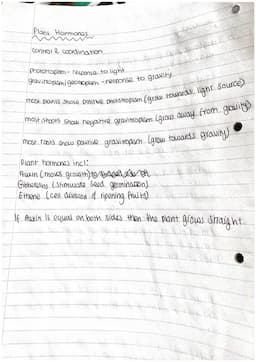 Plant Hormones
control & coordination
phototropism - response to light
gravitropism/geotropism - response to gravity
most plants show positive phototropism (grow towards light source)
most shoots show negative gravitropism (grow away from gravity)
most roots show positive gravitropism (grow towards gravity)
Plant hormones incl:
Auxin (more growth)
Gibberellins (stimulate seed germination)
Ethene (cell division & ripening fruits)
If Auxin is equal on both sides then the plant grows straight